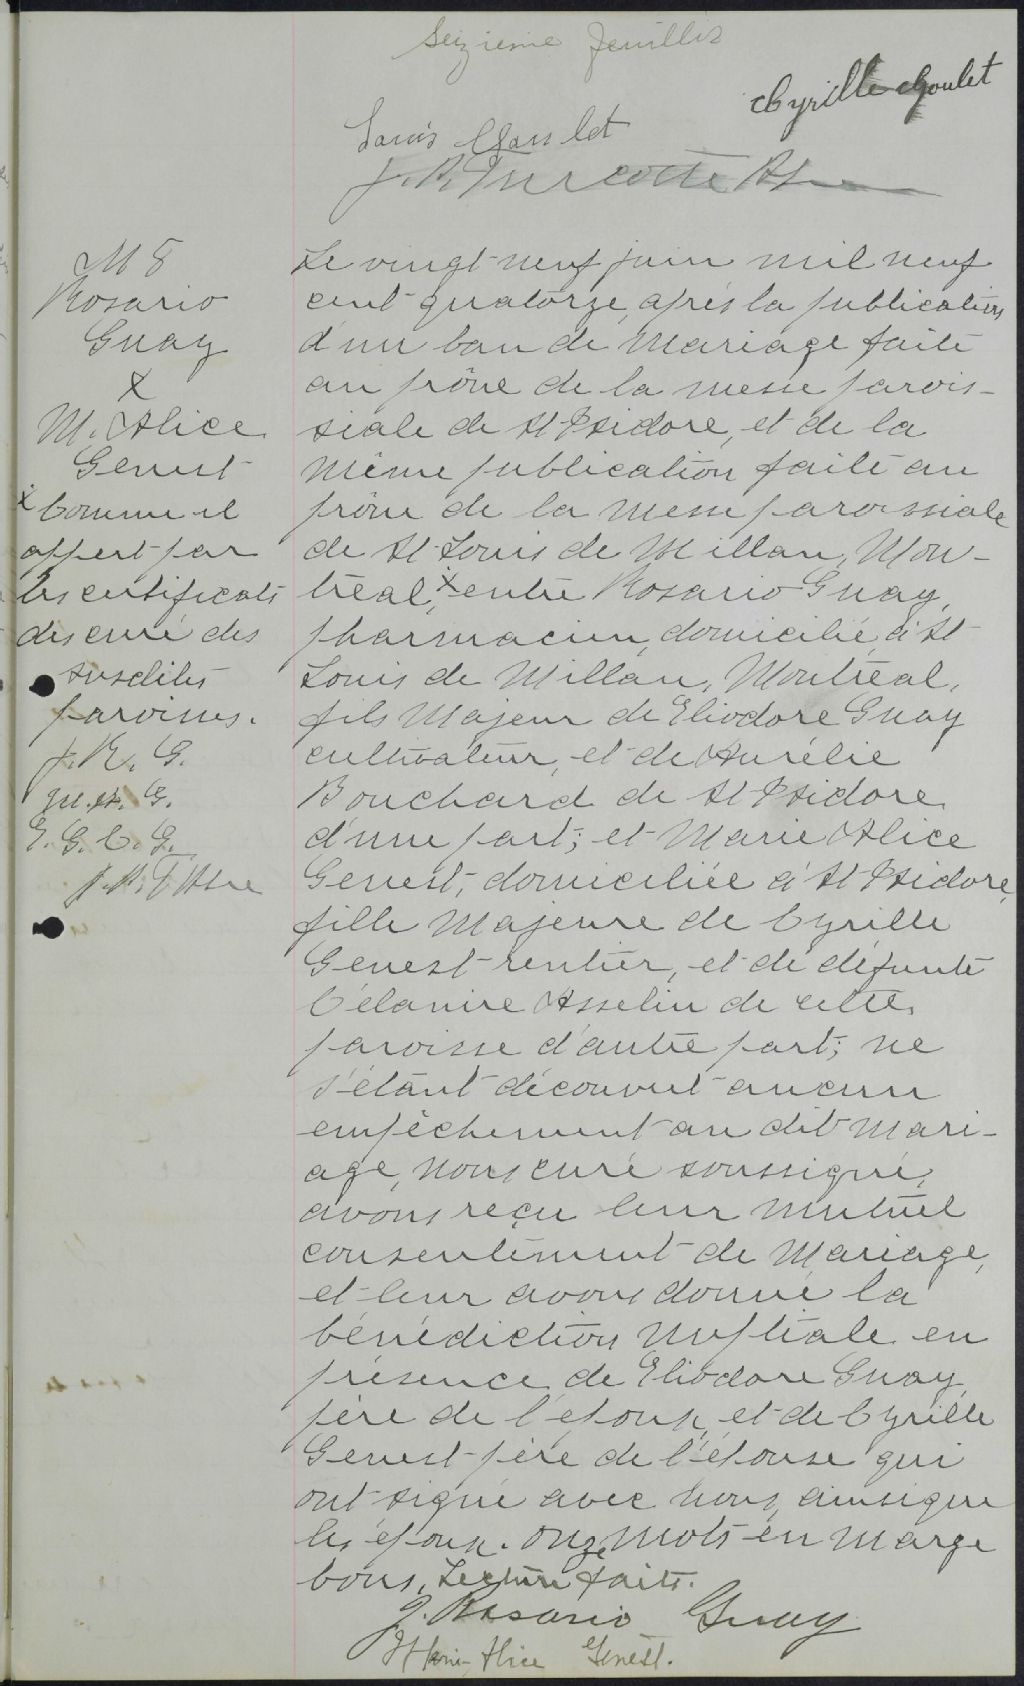 Seizieme feuillet
Cyrille Goulet
Louis Goulet
J. A. Turcotte Ptre
M 8
Rosario
Guay
X
M. Alice
Genest
x Comme il
appert par
les certificats
des curé des
susdites
paroisses.
J. R. G.
M. A. G.
E. G. C. G.
J. A. T. Ptre
Le vingt-neuf juin mil neuf
cent quatorze, après la publication
d'un ban de mariage faite
au prône de la messe parois-
siale de St Isidore, et de la
même publication faite au
prône de la messe paroissiale
de St Louis de Millan, Mon-
tréal, x entre Rosario Guay,
pharmacien, domicilié à St
Louis de Millan, Montréal,
fils majeur de Eliodore Guay
cultivateur, et de Aurélie
Bouchard de St Isidore
d'une part; et Marie Alice
Genest, domiciliée à St Isidore,
fille majeure de Cyrille
Genest rentier, et de défunte
Célanire Asselin de cette
paroisse d'autre part; ne
s'étant découvert aucun
empêchement au dit mari-
age, nous curé soussigné,
avons reçu leur mutuel
consentement de mariage,
et leur avons donné la
bénédiction nuptiale en
présence de Eliodore Guay
père de l'époux, et de Cyrille
Genest père de l'épouse qui
ont signé avec nous, ainsi que
les époux. Onze mots en marge
bons. Lecture faite.
J. Rosario Guay
Marie-Alice Genest.